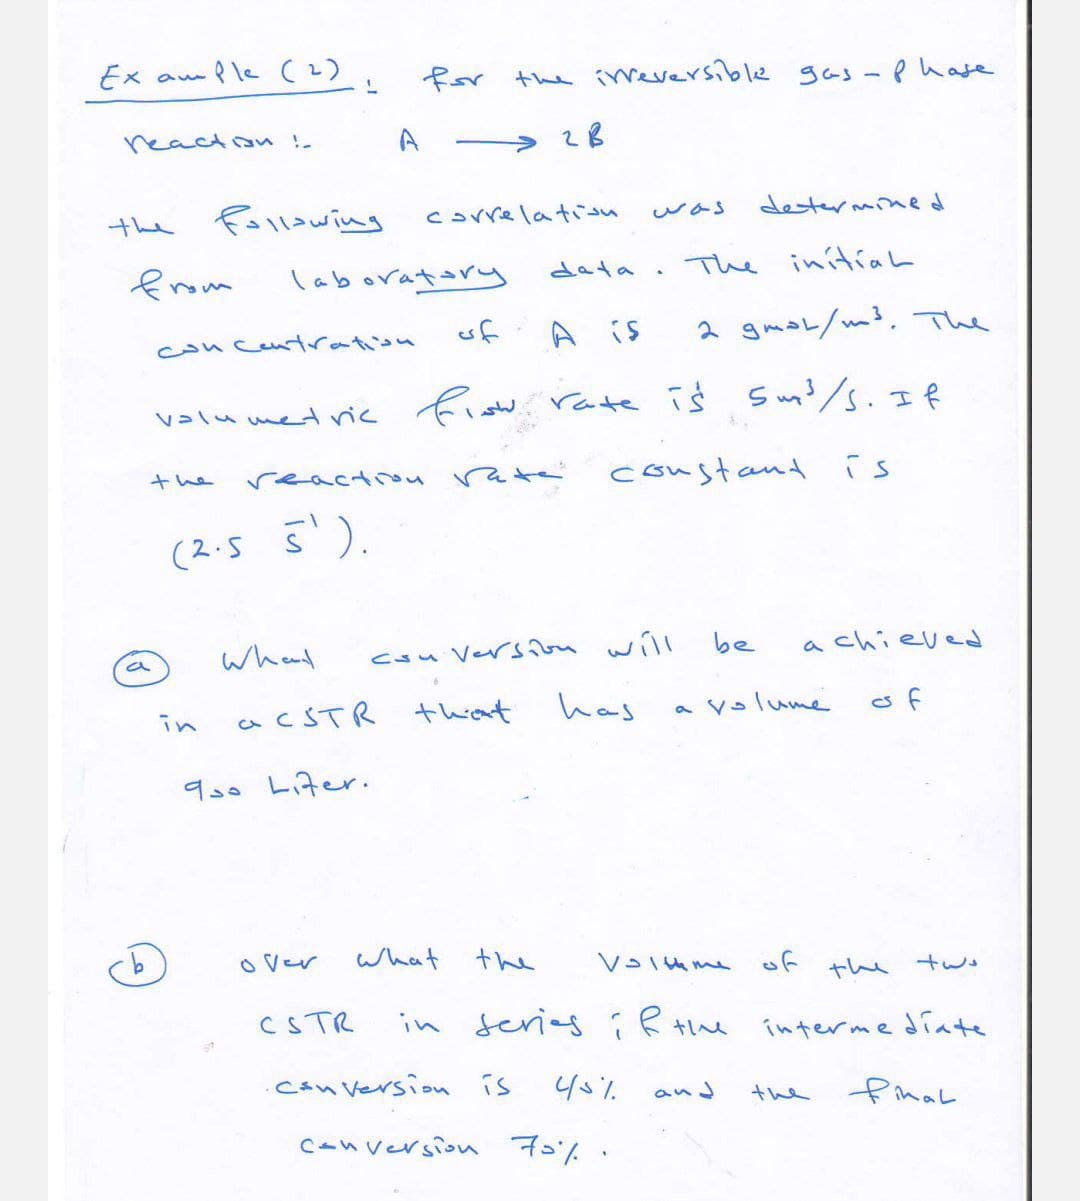 Example (2): for the irreversible gas-phase
reaction :- A → 2B
the following correlation was determined
from laboratory data. The initial
concentration of A is 2 gmol/m³. The
volumetric flow rate is 5 m³/s. If
the reaction rate constant is
(2.5 s⁻¹).
(a) What conversion will be achieved
in a CSTR that has a volume of
900 Liter.
(b) over what the volume of the two
CSTR in series if the intermediate
conversion is 40% and the final
conversion 70%.